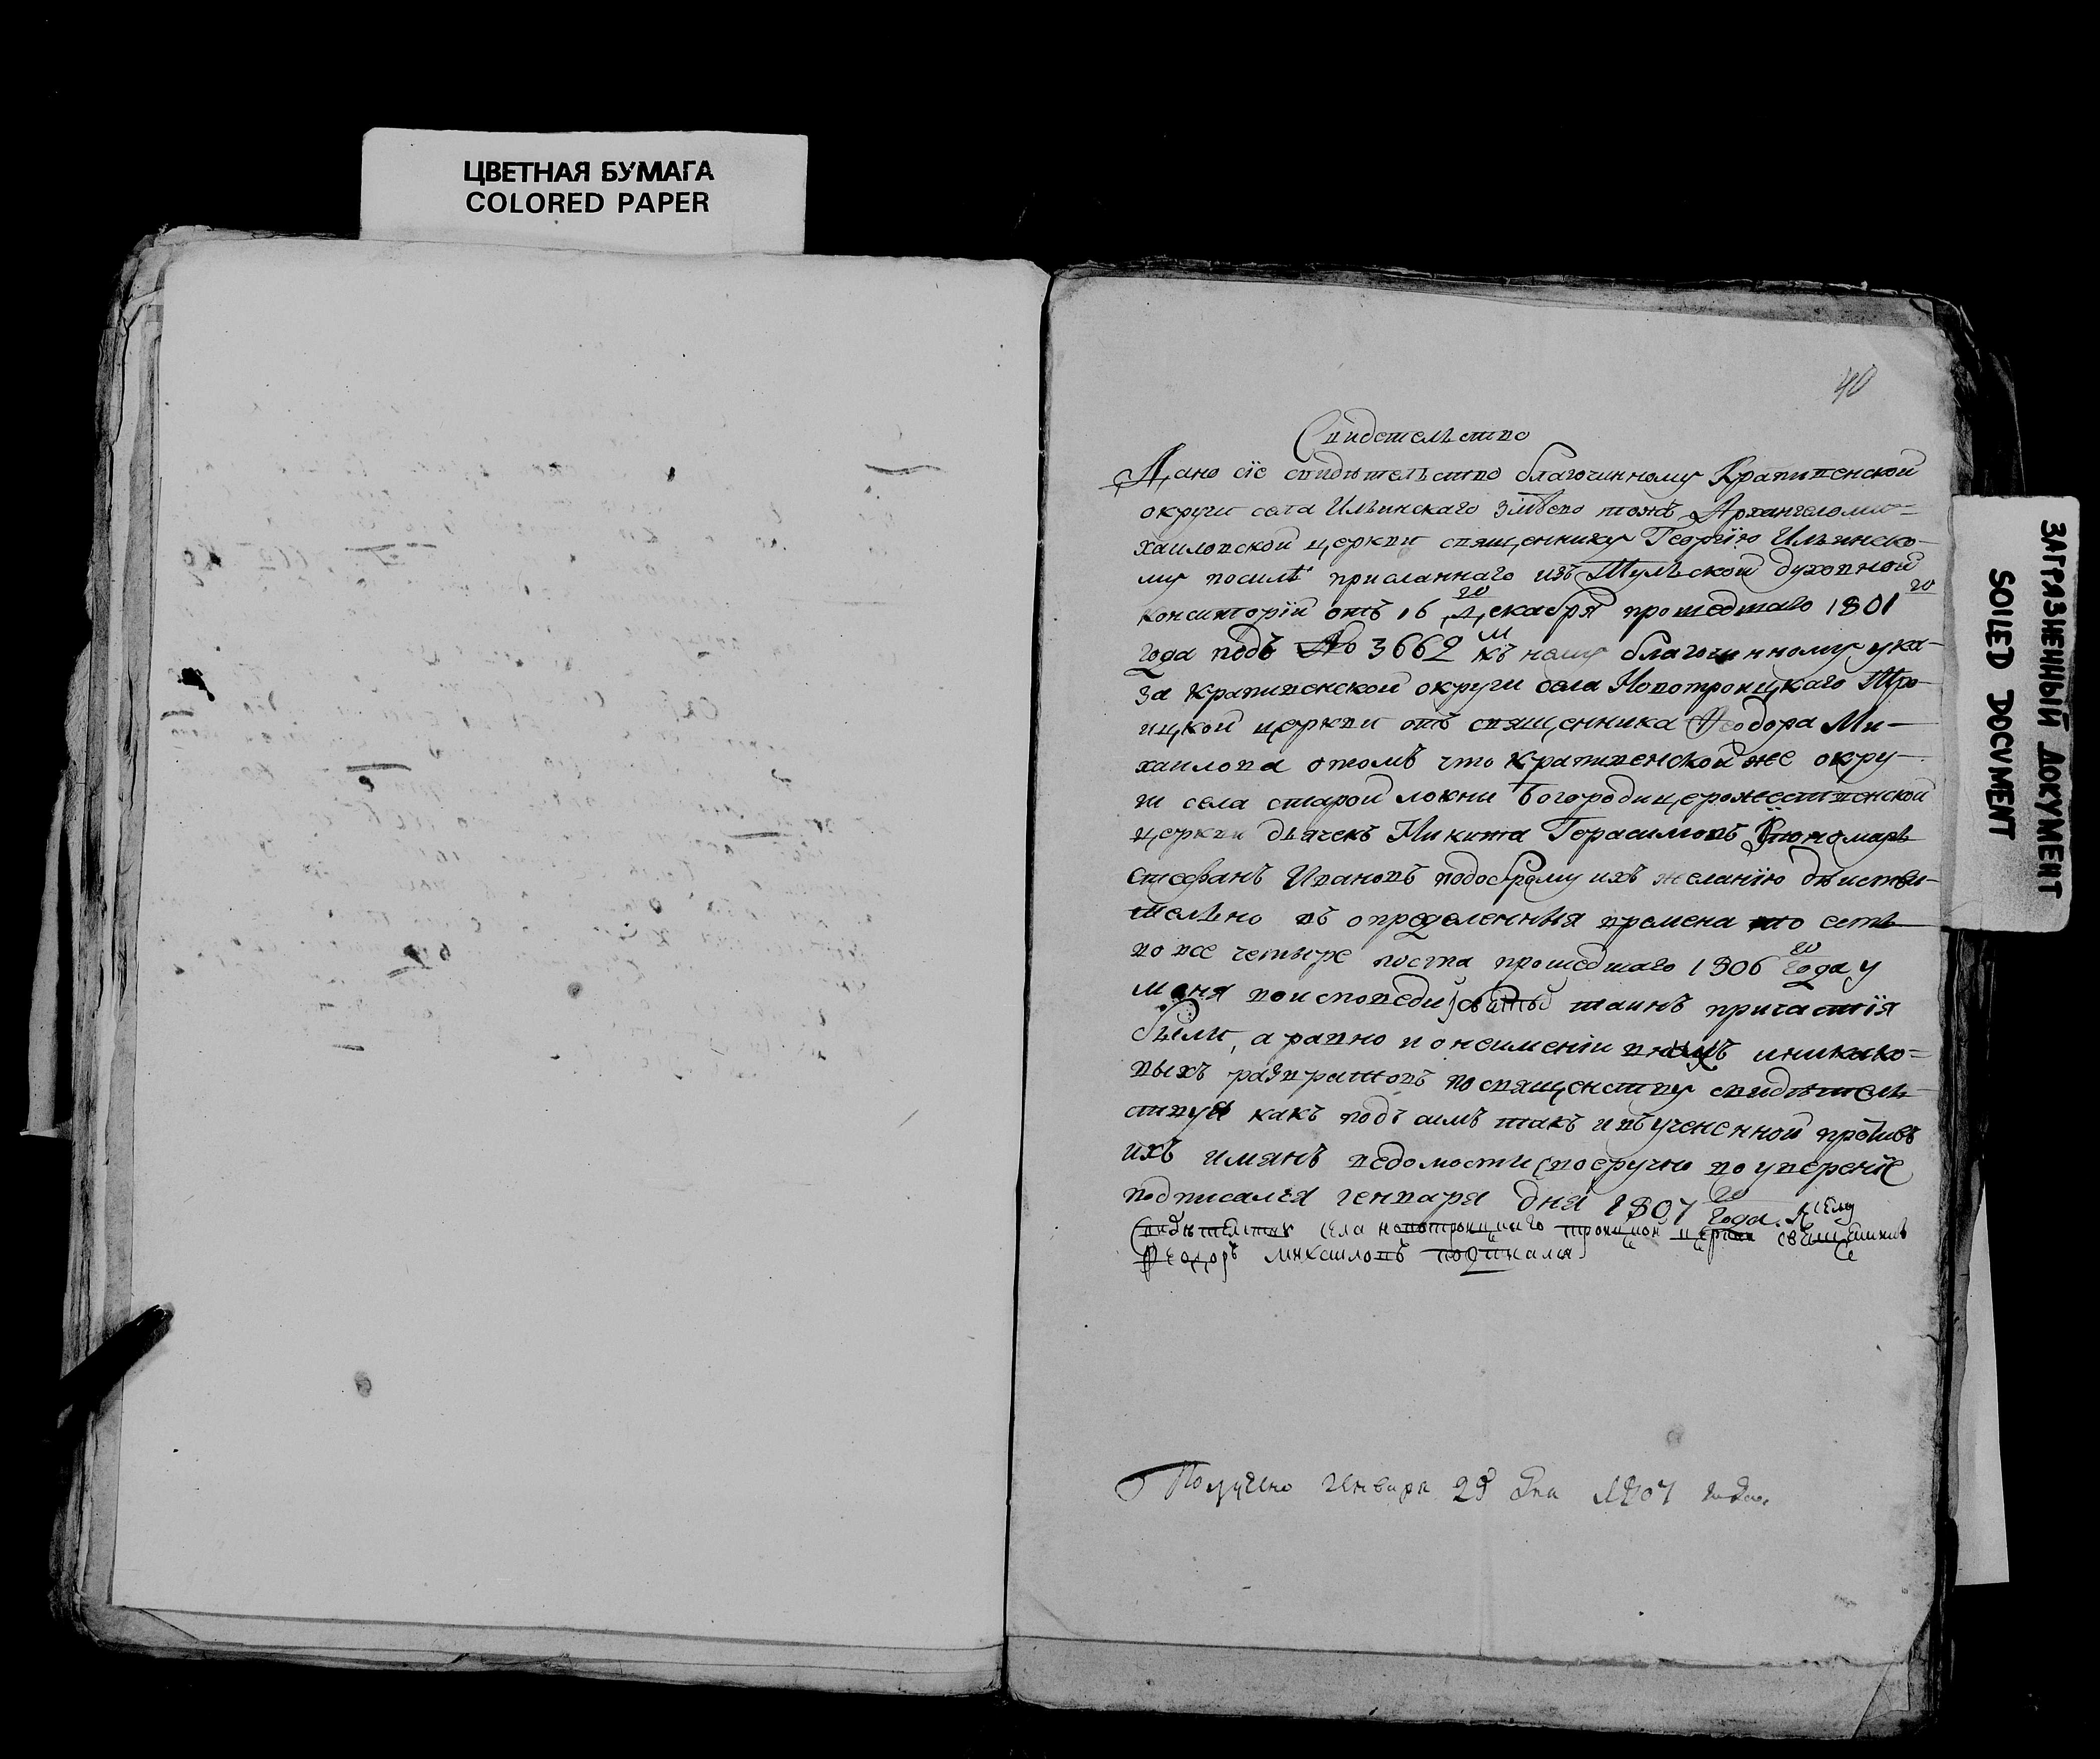 ЦВЕТНАЯ БУМАГА
COLORED PAPER
ЗАГРЯЗНЕННЫЙ ДОКУМЕНТ
SOILED DOCUMENT
40
Свидетельство
Дано сїе свидѣтельство благочинному Крапивенской
округи села Ильинскаго Змѣево тожъ Архангеломи=
хаиловской церкви священнику Георгїю Ильинско-
му посилѣ присланнаго изъ Тульской духовной
конситорїи отъ 16 го Декабря прошедшаго 1801 го
года подъ № 3662 м къ нему благочинному ука-
за Крапивенской округи села Новотроицкаго Тро-
ицкой церкви отъ священника Феодора Ми-
хаилова отомъ что крапивенской же окру-
ги села старой локни Богородицерожественской
церкви дьячекъ Никита Герасимовъ Пономарь
стефанъ Ивановъ подоброму ихъ желанїю дѣистви-
тельно въ определенныя времена то есть
во все четыре поста прошедшаго 1806 го года у
меня наисповеди святыхъ таинъ причастїя
были, а равно и о неимении внихъ иникако=
выхъ развратовъ по священству свидѣтель
ствуя какъ подъ симъ такъ ивъученсенной противъ
ихъ имянъ ведомости своеручно во уверенїе
подписался генваря дня 1807 го года. К сему
свидѣтельству села новотроицкаго троицкой церкви священникъ
Феодоръ михаиловъ подписался
Получено генваря 29 дня 1807 года